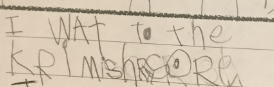 I WAt to the
KRImshRCORG